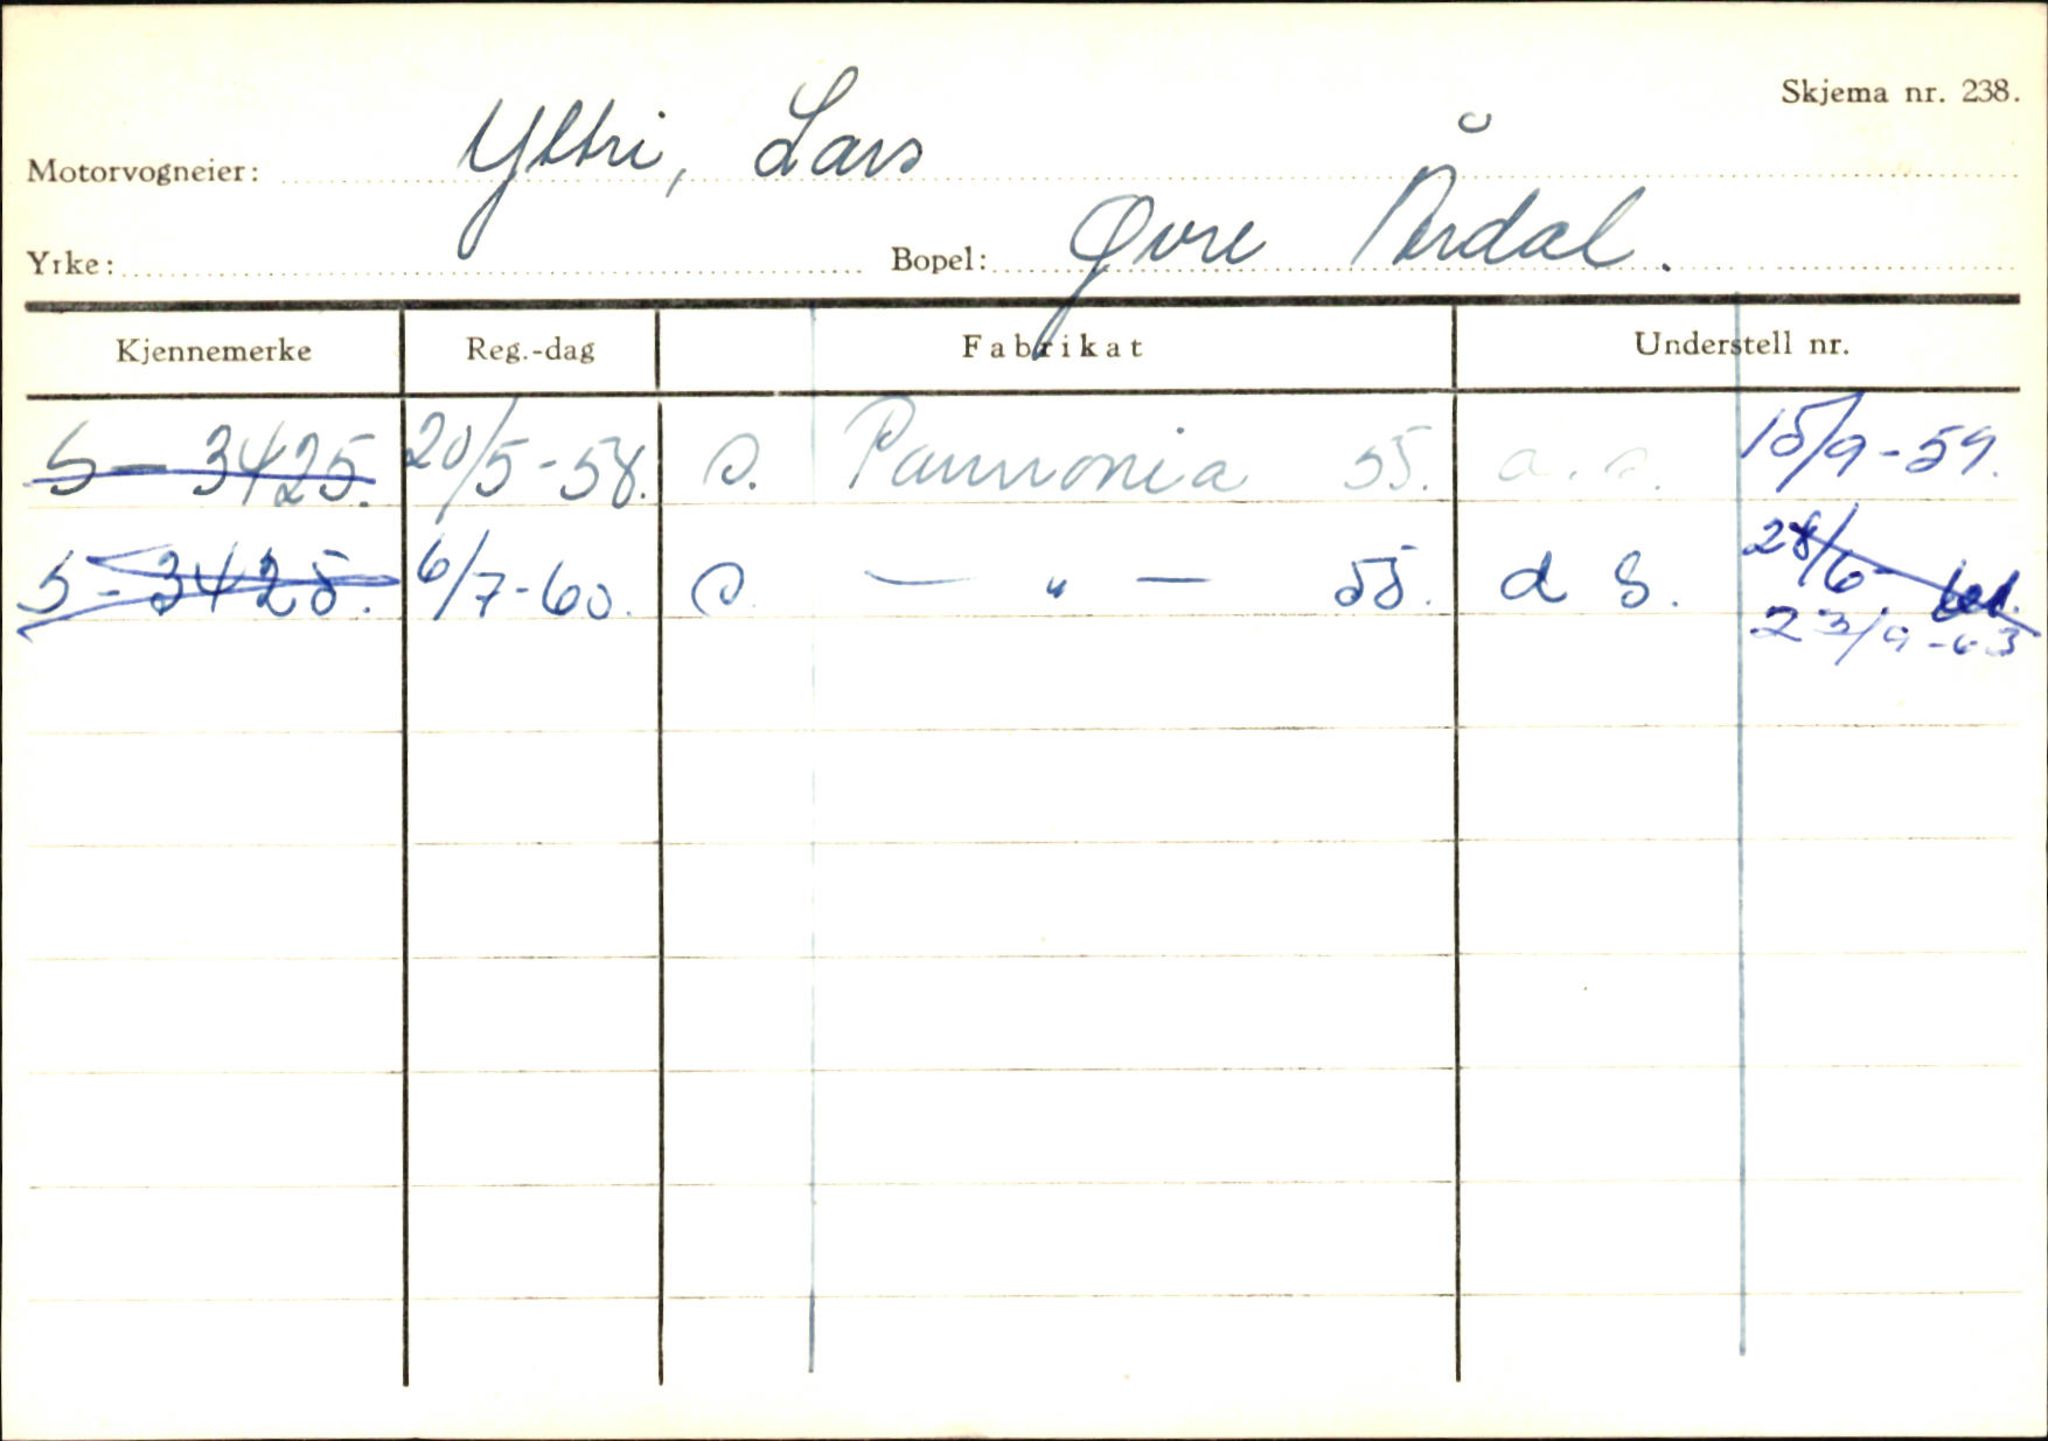 Skjema nr. 238.
Motorvogneier: Yttri, Lars
Yrke: Bopel: Øvre Årdal.
Kjennemerke Reg.-dag Fabrikat Understell nr.
S - 3425. 20/5-58. s. Pannonia 55. a. s. 15/9-59.
S - 3425. 6/7-60. s. — " — 55. d S. 28/6-
23/9-63